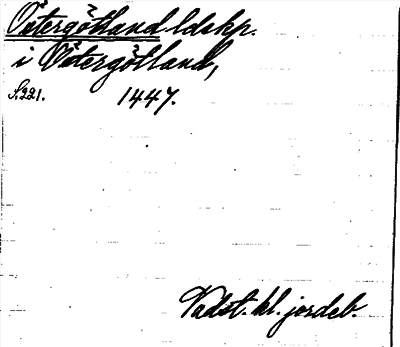 Östergötland ldskp.
i Östergötland,
S.221. 1447.
Vadst. kl. jordeb.